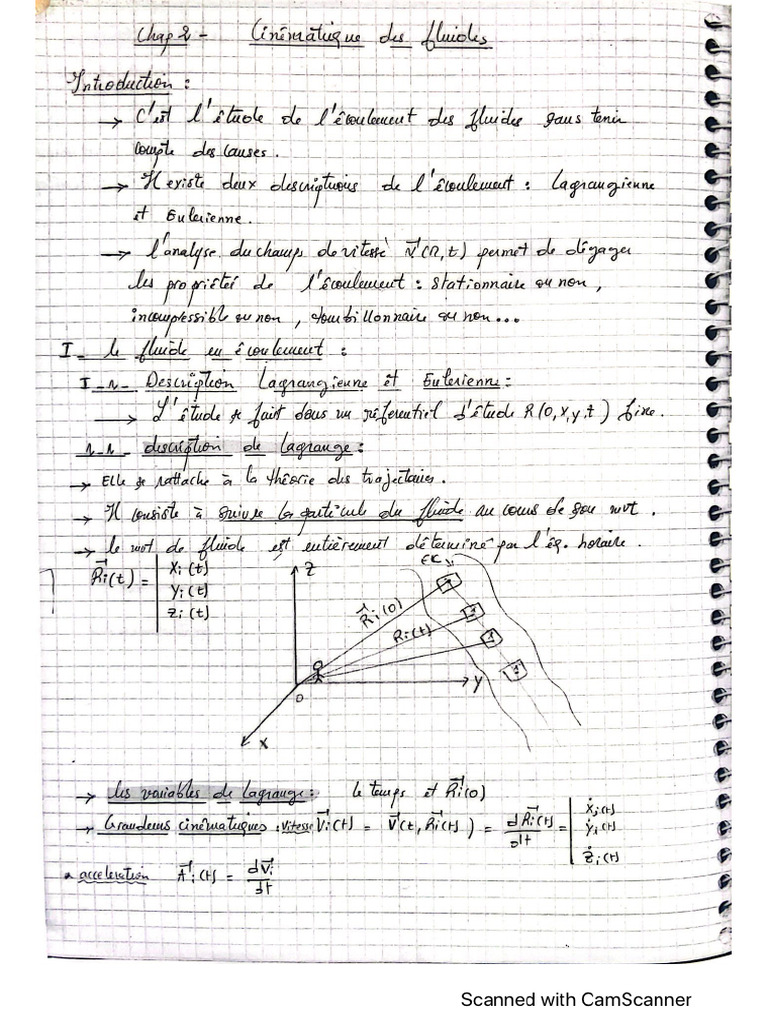 Chap 2 - Cinématique des fluides
Introduction :
→ C'est l'étude de l'écoulement des fluides sans tenir
compte des causes.
→ Il existe deux descriptions de l'écoulement : Lagrangienne
et Eulerienne.
→ l'analyse du champs de vitesse V(M,t) permet de dégager
les propriétés de l'écoulement : stationnaire ou non,
incompressible ou non, tourbillonnaire ou non...
I - le fluide en écoulement :
I-1- Description Lagrangienne et Eulerienne :
→ L'étude se fait dans un référentiel d'étude R(O,x,y,t) fixe.
1-1- description de Lagrange :
→ Elle se rattache à la théorie des trajectoires.
→ Il consiste à suivre la particule du fluide au cours de son mvt.
→ le mvt de fluide est entièrement déterminé par l'éq. horaire.
Ri(t) = | Xi(t)
Yi(t)
Zi(t)
Z
Ri(0)
Ri(t)
O
Y
X
→ les variables de Lagrange : le temps et Ri(0)
→ Grandeurs cinématiques : vitesse Vi(t) = V(t, Ri(t)) = dRi(t)/dt = | ẋi(t)
ẏi(t)
żi(t)
• acceleration Ai(t) = dVi/dt
Scanned with CamScanner